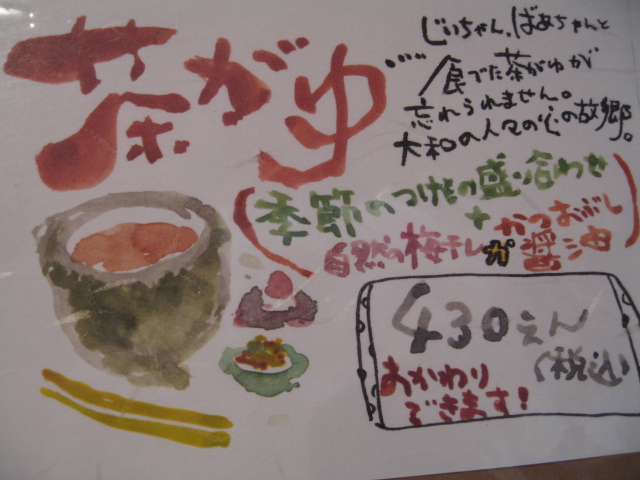 茶がゆ
じいちゃん、ばあちゃんと
食べた茶がゆが
忘れられません。
大和の人々の心の故郷。
(季節のつけもの盛り合わせ
+
自然の梅干しかかつおぶし醤油)
430えん
(税込)
おかわり
できます!